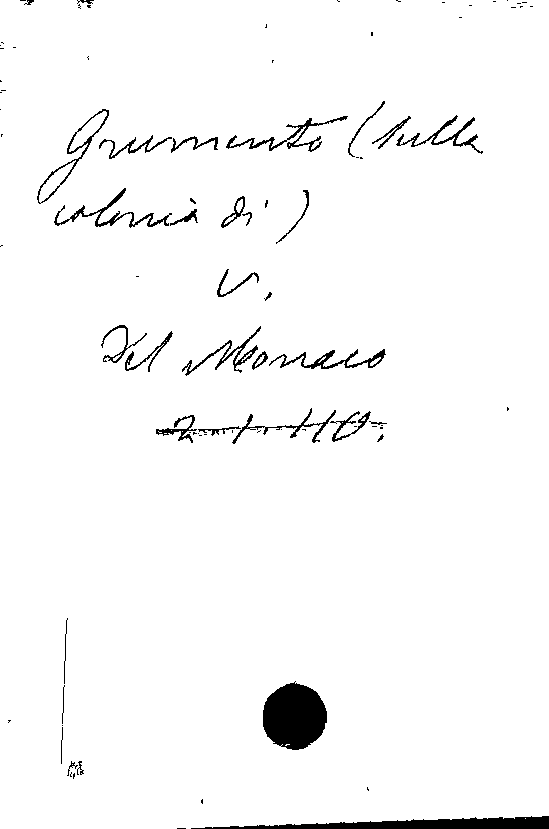 Grumento (sulla
colonia di)
v.
Del Monaco
2. 1. 110.